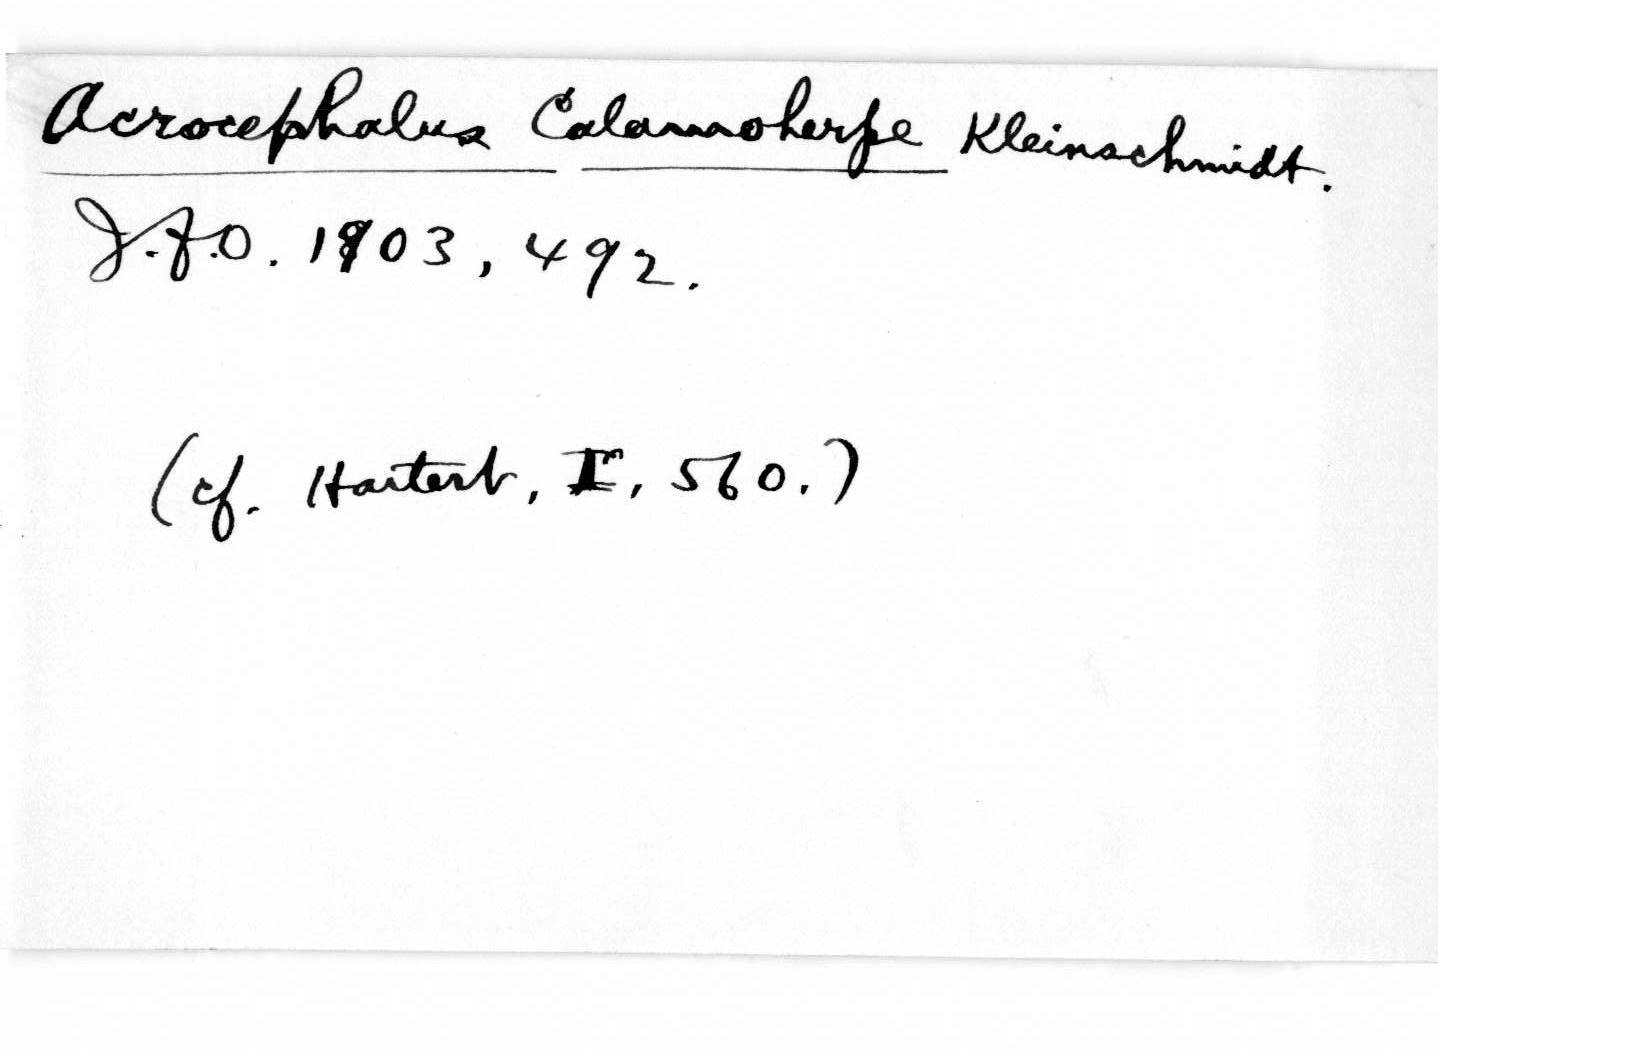 Acrocephalus Calamoherpe Kleinschmidt.
J.f.O. 1903, 492.
(cf. Hartert, I, 560.)